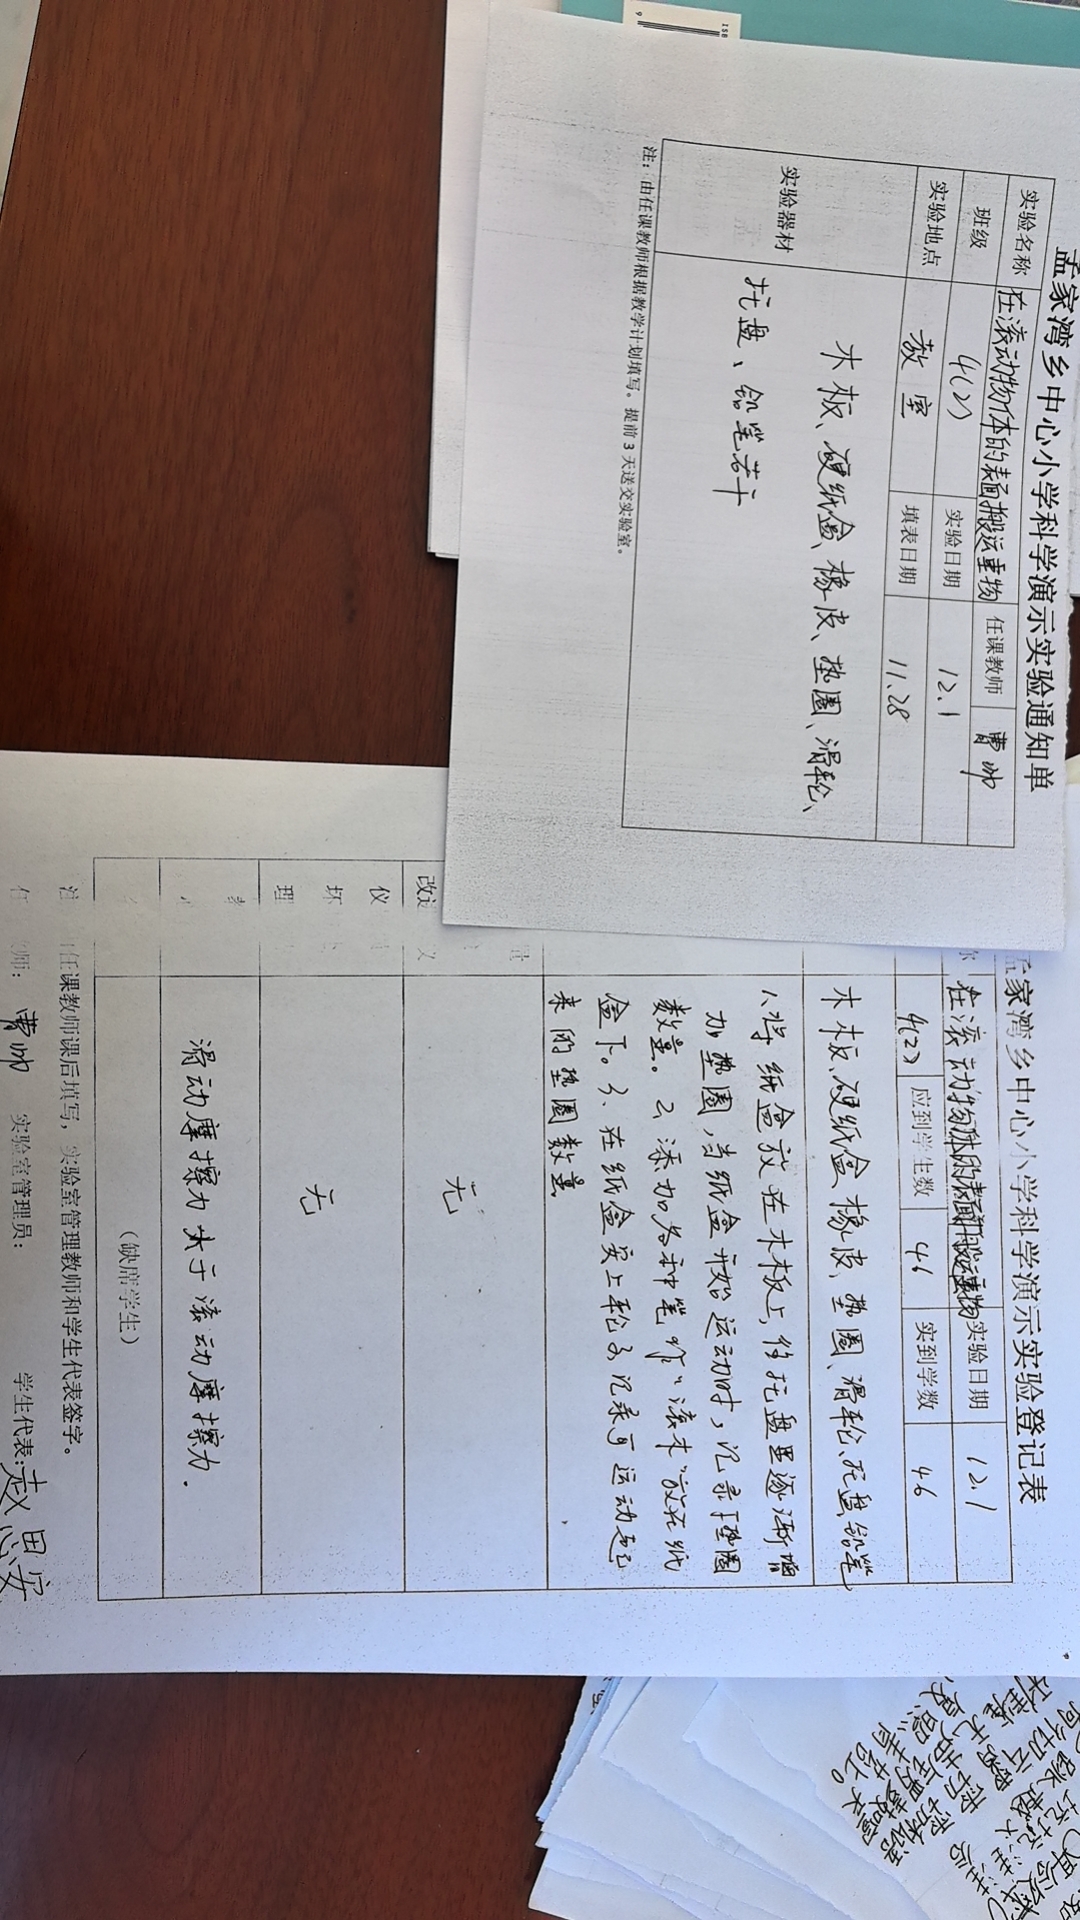 孟家湾乡中心小学科学演示实验通知单
实验名称 在滚动物体的表面搬运重物 任课教师 曹帅
班级 4(2) 实验日期 12.1
实验地点 教室 填表日期 11.28
实验器材
木板、硬纸盒、橡皮、垫圈、滑轮、
托盘、铅笔若干
注：由任课教师根据教学计划填写。提前3天送交实验室。
孟家湾乡中心小学科学演示实验登记表
在滚动物体的表面搬运重物 实验日期 12.1
4(2) 应到学生数 46 实到学数 46
木板、硬纸盒、橡皮、垫圈、滑轮、托盘、铅笔
1、将纸盒放在木板上，往托盘里逐渐增
加垫圈，当纸盒开始运动时，记录下垫圈
数量。2、添加各种笔作"滚木"放在纸
盒下。3、在纸盒安上轮子，记录下运动起
来的垫圈数量
改
无
仪
坏
理
无
滑动摩擦力大于滚动摩擦力.
（缺席学生）
注 任课教师课后填写，实验室管理教师和学生代表签字。
任 师：曹帅 实验室管理员： 学生代表：赵思安
ISB
9